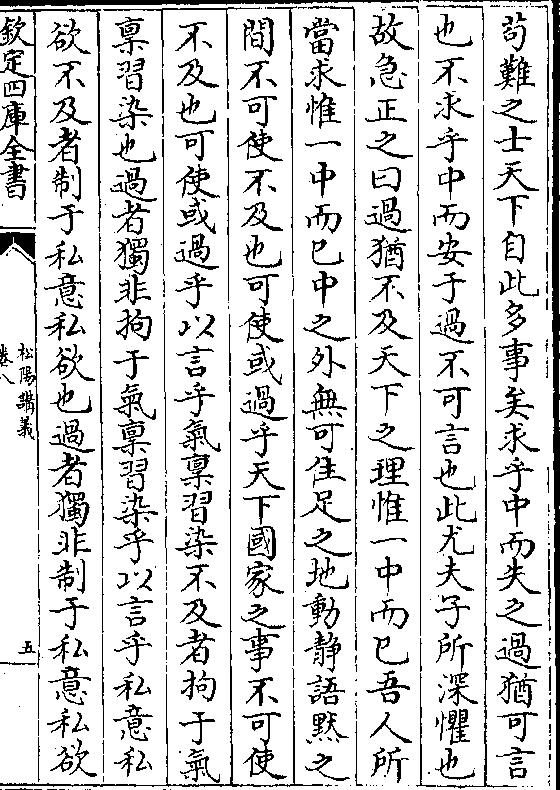 苟難之士天下自此多事矣求乎中而失之過猶可言
也不求乎中而安于過不可言也此尤夫子所深懼也
故急正之曰過猶不及天下之理惟一中而已吾人所
當求惟一中而已中之外無可住足之地動靜語黙之
間不可使不及也可使或過乎天下國家之事不可使
不及也可使或過乎以言乎氣禀習染不及者拘于氣
禀習染也過者獨非拘于氣禀習染乎以言乎私意私
欲不及者制于私意私欲也過者獨非制于私意私欲
欽定四庫全書
松陽講義
卷八
五